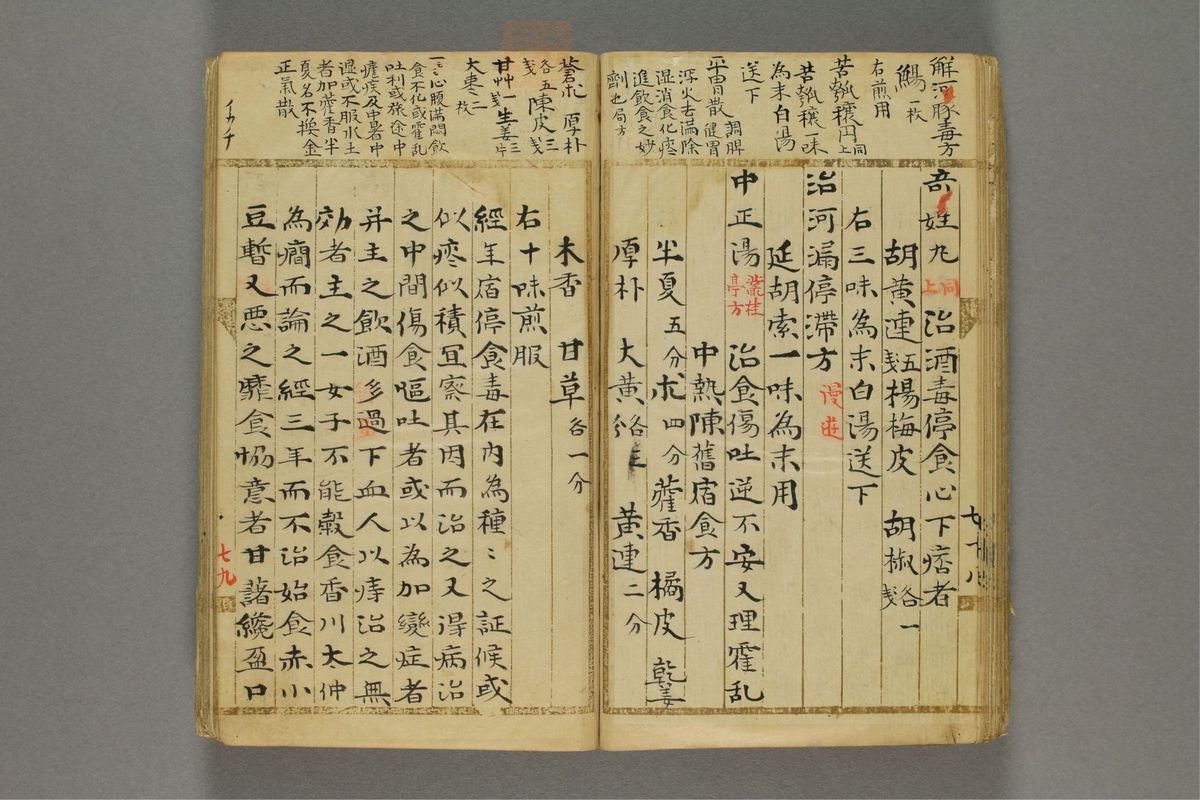 解河豚毒方
鰑 一枚
右煎用
苦瓠穰円 同上
苦瓠穰一味
為末白湯
送下
平胃散 調脾健胃
瀉火去満除
湿消食化痰
進飲食之妙
劑也局方
奇娃丸 同上 治酒毒停食心下痞者
胡黄連 五戔 楊梅皮 胡椒 各一戔
右三味為末白湯送下
治河漏停滞方 漫遊
延胡索一味為末用
中正湯 叢桂亭方 治食傷吐逆不安又理霍乱
中熱陳舊宿食方
半夏 五分 朮 四分 藿香 橘皮 乾姜
厚朴 大黄 各三 黄連 二分
七十八
蒼朮 厚朴
各五戔 陳皮 三戔
甘艸 一 生姜 三片
大棗 二枚
一云心腹満悶飲
食不化或霍乱
吐利或旅途中
瘧疾及中暑中
湿或不服水土
者加藿香半
夏名不換金
正氣散
イクチ
木香 甘草 各一分
右十味煎服
經年宿停食毒在内為種〻之証候或
似疼似積冝察其因而治之又得病治
之中間傷食嘔吐者或以為加變症者
并主之飲酒多過下血人以痔治之無
効者主之一女子不能穀食香川太仲
為癇而論之經三年而不治始食赤小
豆暫又悪之靡食恊意者甘藷纔盈口
七九